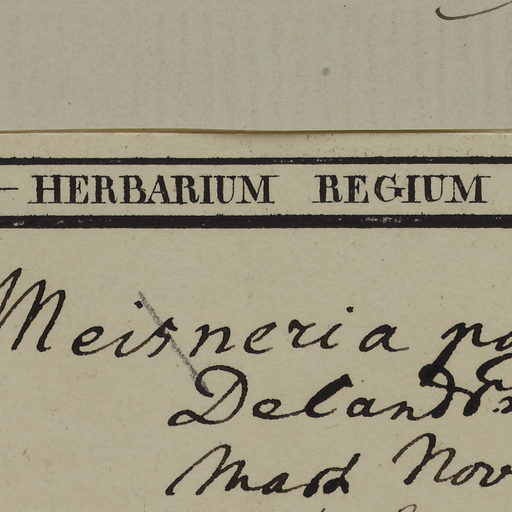 HERBARIUM REGIUM
Meisneria pa
Deland
Mart Nov